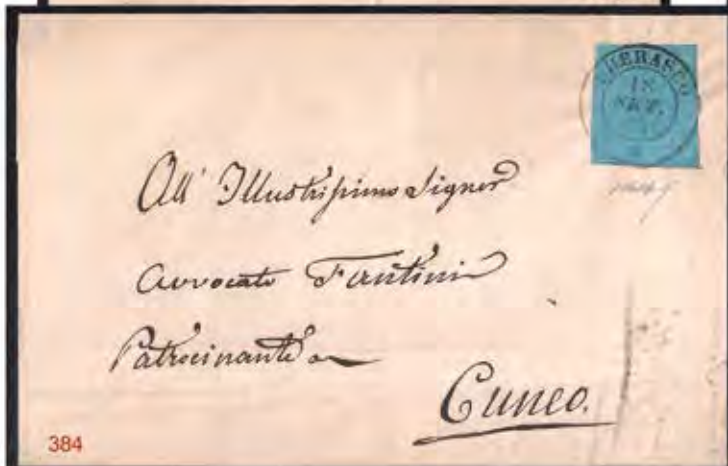 CHERASCO
18
SET.
All' Illustrissimo Signor
Avvocato Fantini
Patrocinante a
Cuneo.
384